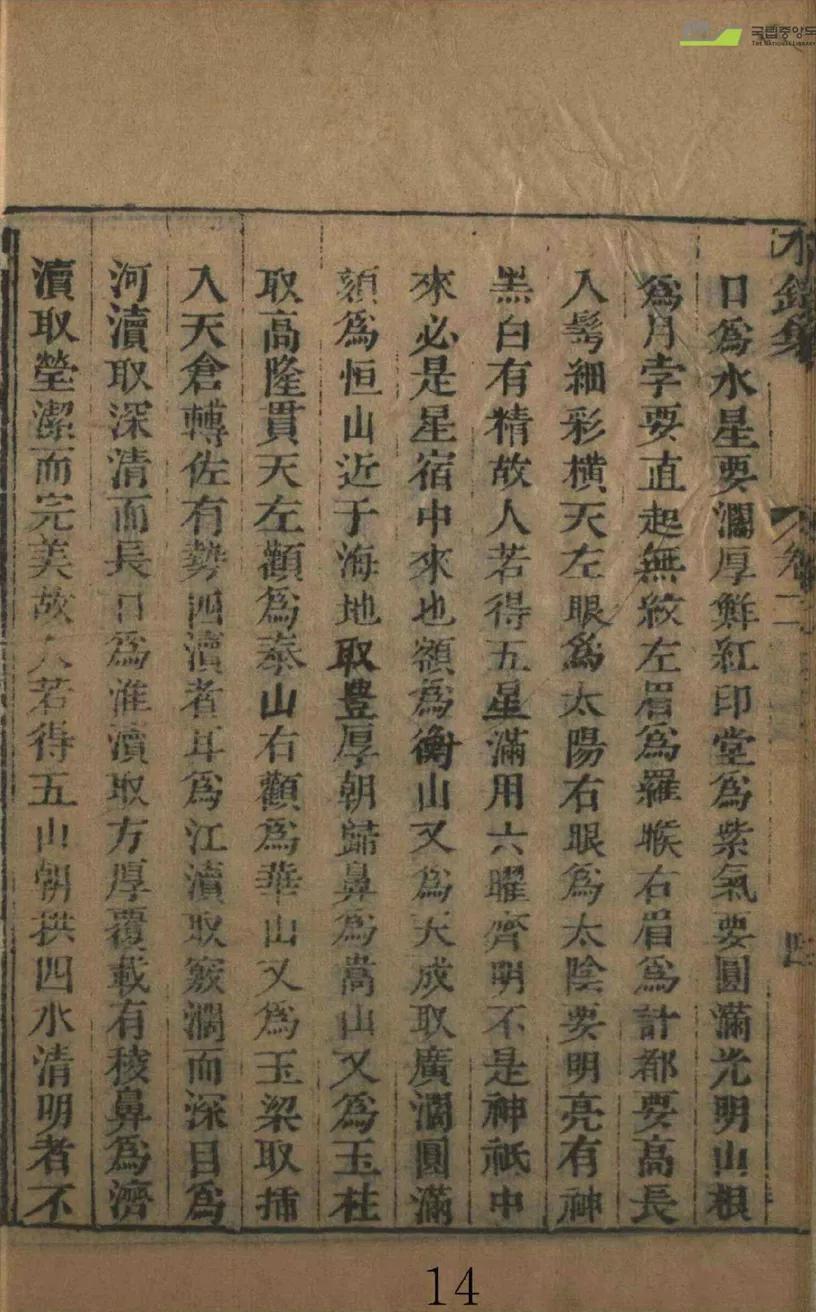 水鏡集
卷二
四
口爲水星要濶厚鮮紅印堂爲紫氣要圓滿光明山根
爲月孛要直起無紋左眉爲羅㬋右眉爲計都要高長
入鬂細彩橫天左眼爲太陽右眼爲太陰要明亮有神
黑白有精故人若得五星滿用六曜齊明不是神祇中
來必是星宿中來也額爲衡山又爲天成取廣濶圓滿
頦爲恒山近于海地取豊厚朝歸鼻爲嵩山又爲玉柱
取高隆貫天左顴爲泰山右顴爲華山又爲玉梁取揷
入天倉轉佐有勢四瀆者耳爲江瀆取竅濶而深目爲
河瀆取深清而長口爲淮瀆取方厚覆載有稜鼻爲濟
瀆取瑩潔而完美故人若得五山朝拱四水清明者不
14
국립중앙도
THE NATIONAL LIBRARY